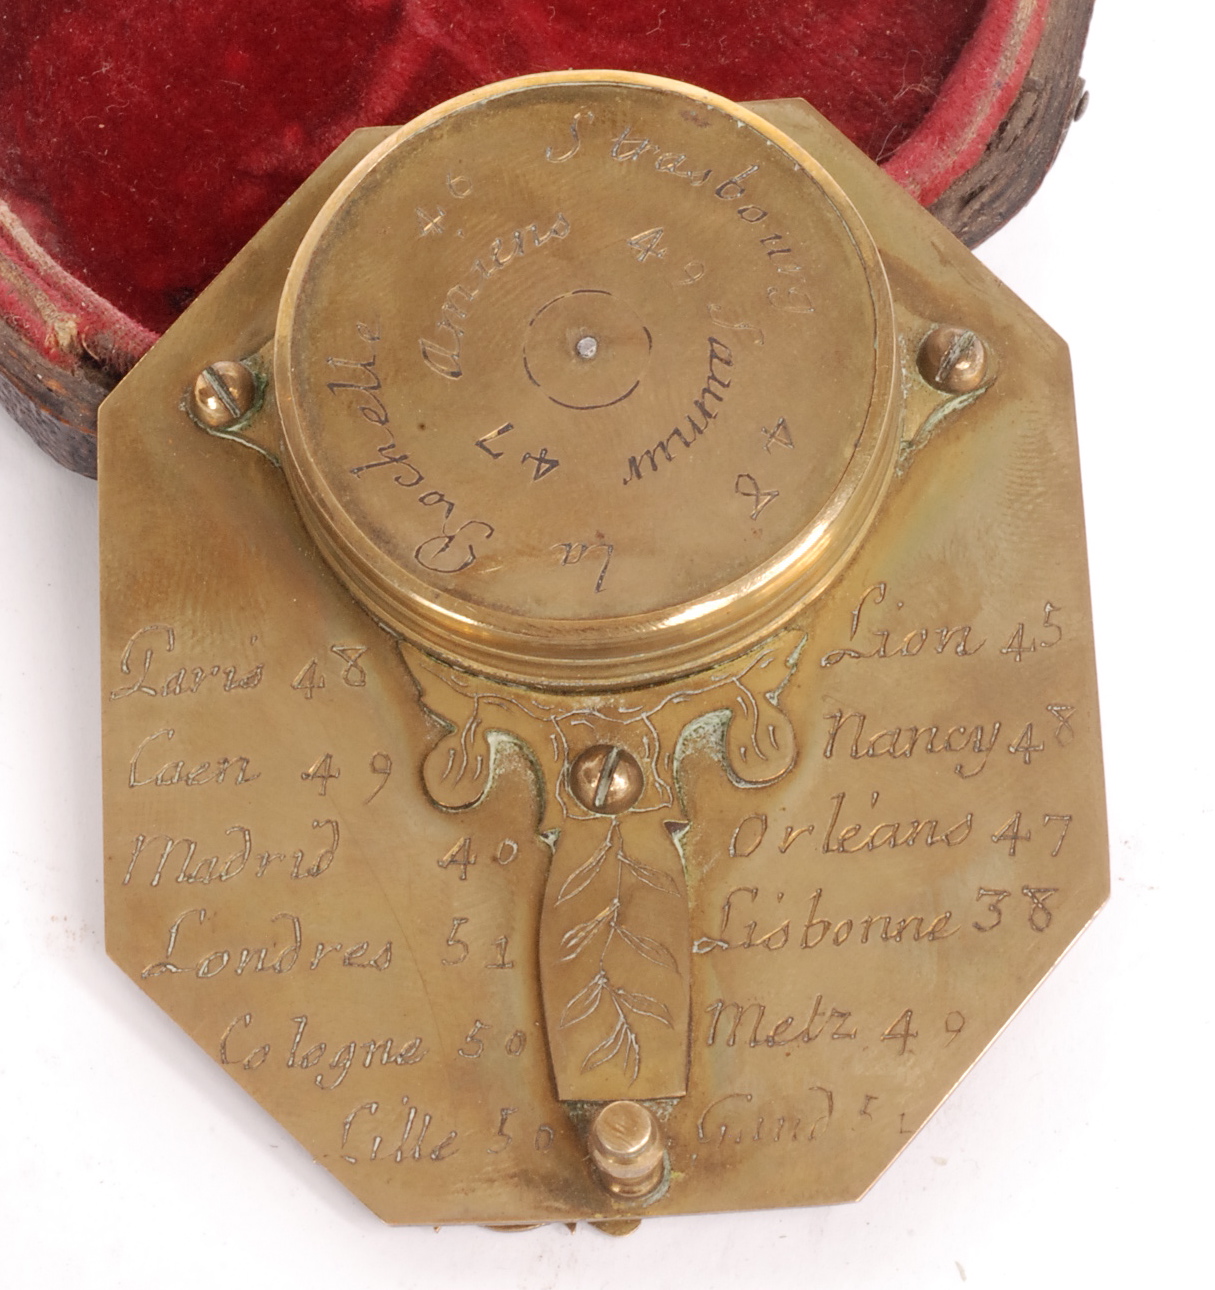 Strasbourg 48
la Rochelle 46
amiens 49
Saumur 47
Paris 48
Caen 49
Madrid 40
Londres 51
Cologne 50
Lille 50
Lion 45
Nancy 48
Orléans 47
Lisbonne 38
Metz 49
Gand 51